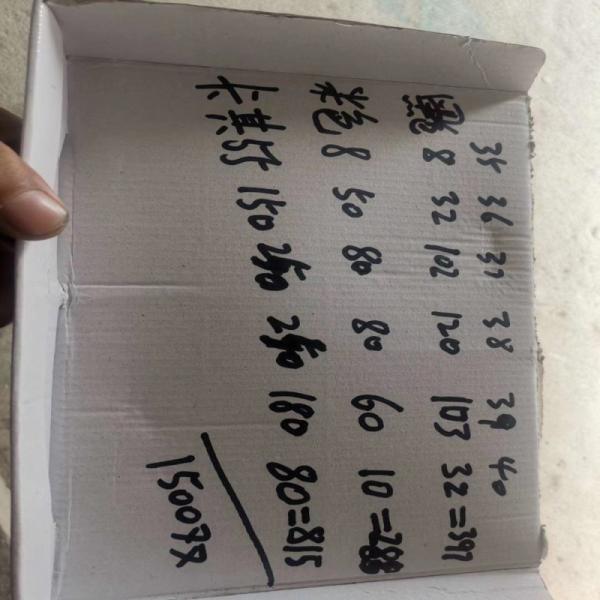 35 36 37 38 39 40
8 32 102 120 103 32=397
米色 8 50 80 80 60 10=288
卡其 55 150 180 80=815
1500双